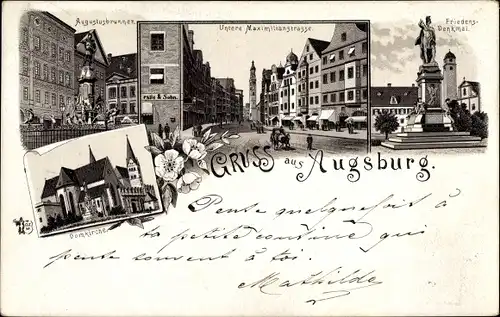 Augustusbrunnen.
Untere Maximilianstrasse.
Friedens-
Denkmal.
& Sohn.
Domkirche.
GRUSS aus Augsburg.
Pense quelquefois à
ta petite cousine qui
pense souvent à toi.
Mathilde